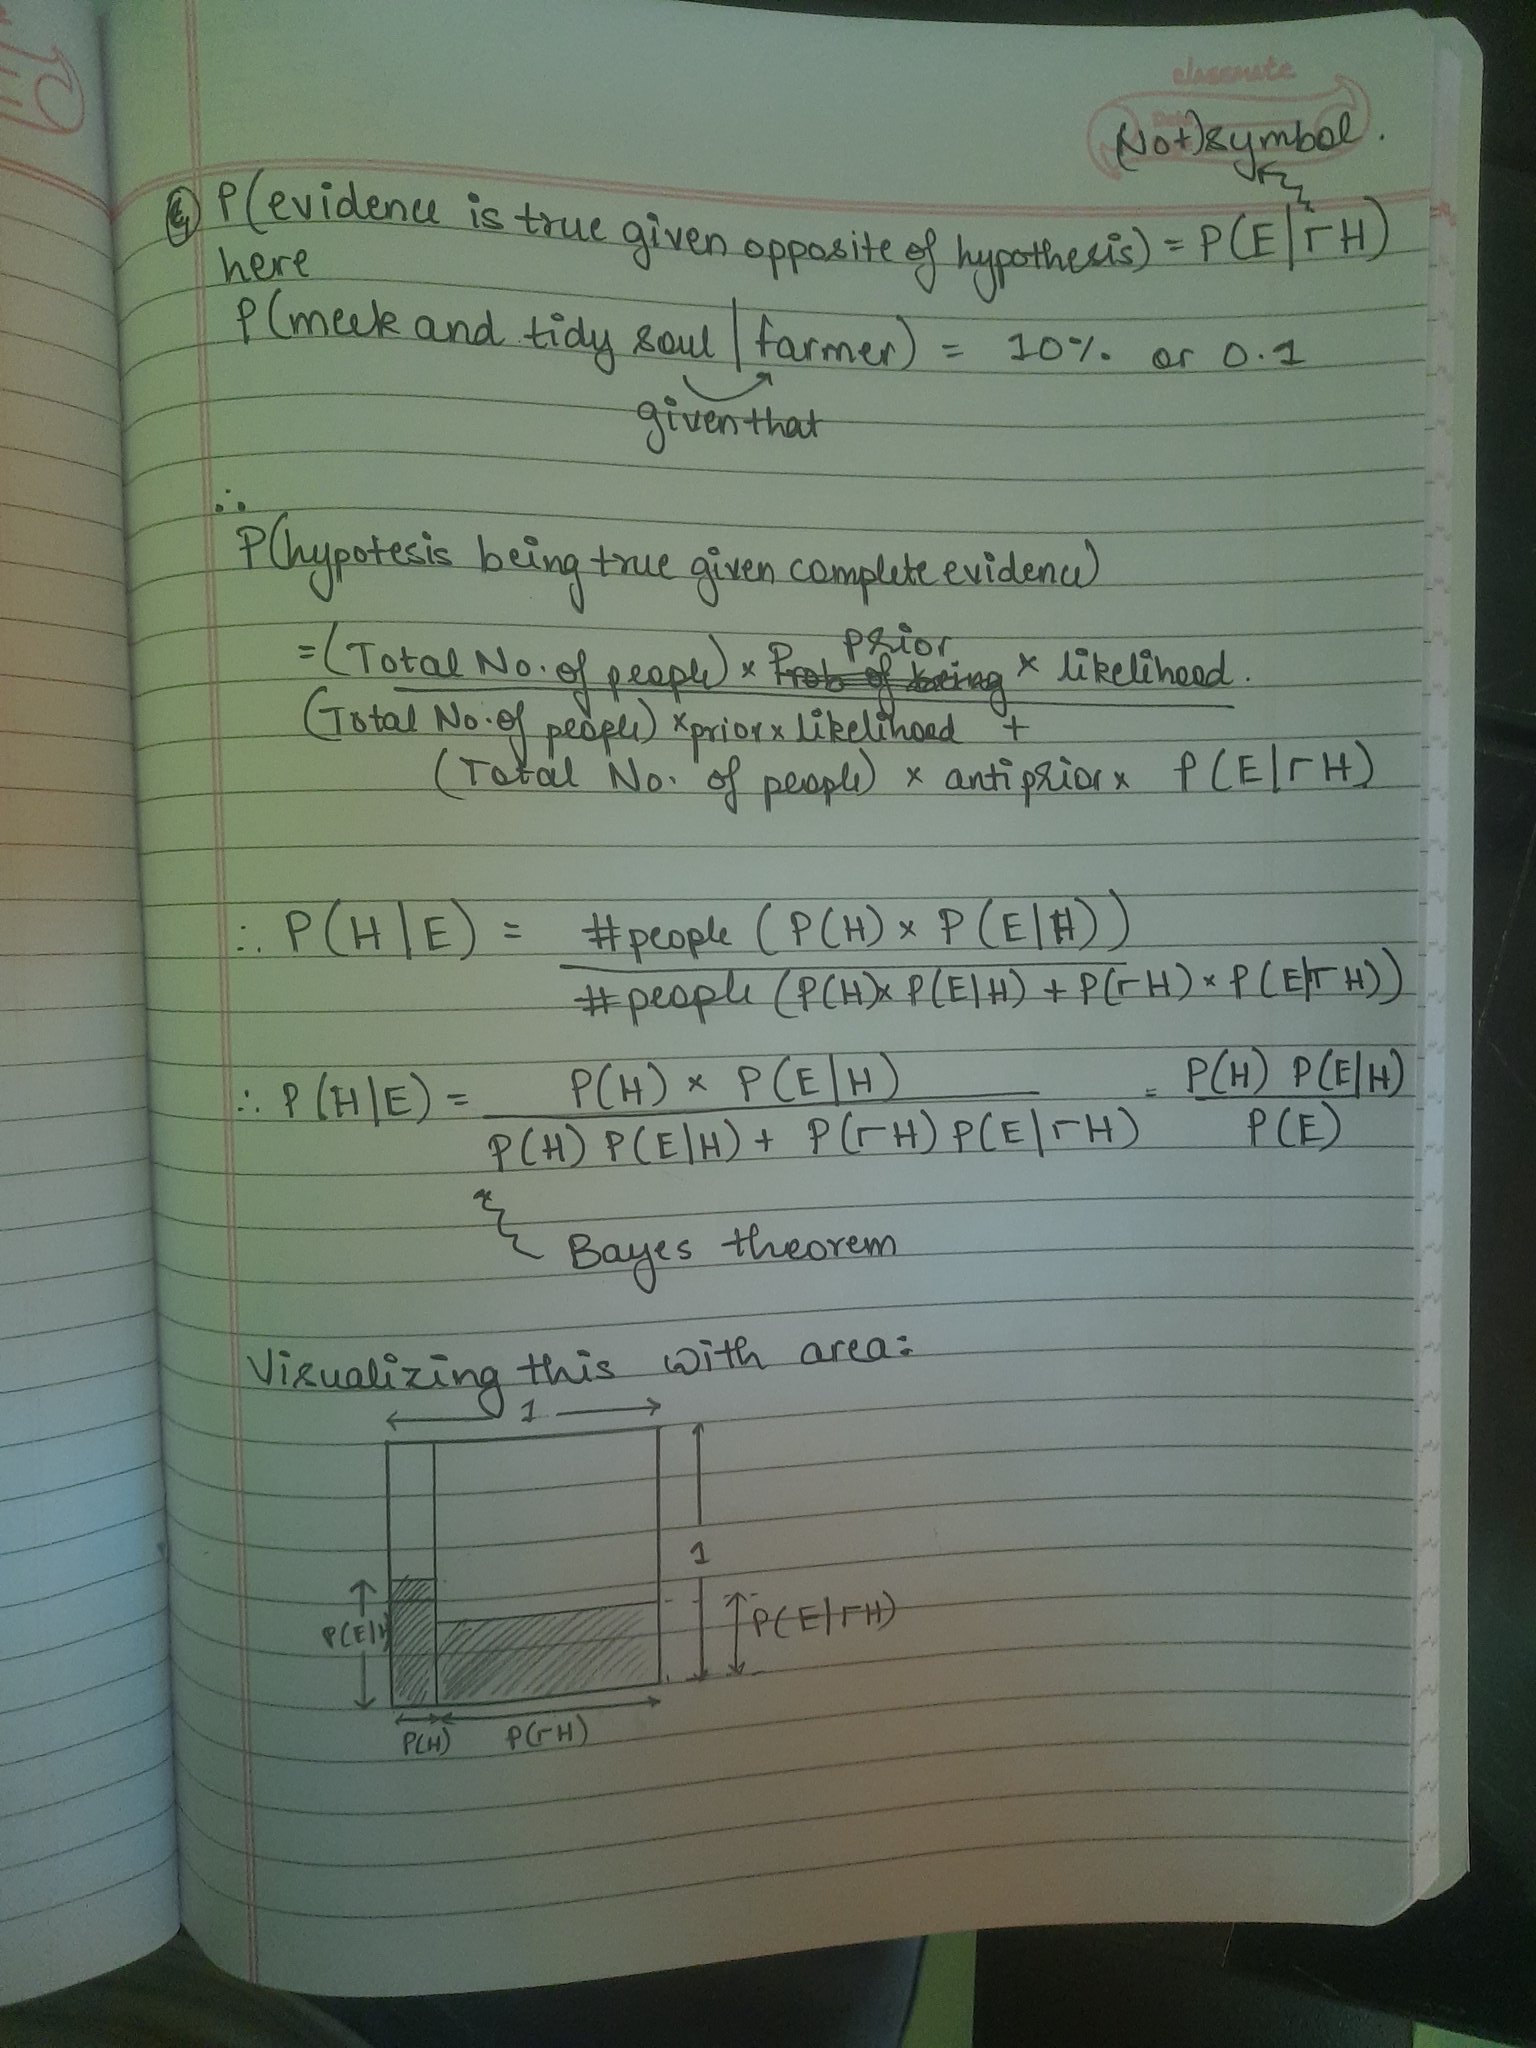 classmate
(Not) symbol.
④ P(evidence is true given opposite of hypothesis) = P(E|ΓH)
here
P(meek and tidy soul | farmer) = 10% or 0.1
given that
∴
P(hypotesis being true given complete evidence)
prior
= (Total No. of people) × Prob of being × likelihood.
(Total No. of people) × prior × likelihood +
(Total No. of people) × antiprior × P(E|ΓH)
∴ P(H|E) = #people (P(H) × P(E|H))
#people (P(H) × P(E|H) + P(ΓH) × P(E|ΓH))
∴ P(H|E) = P(H) × P(E|H) = P(H) P(E|H)
P(H) P(E|H) + P(ΓH) P(E|ΓH) P(E)
Bayes theorem
Visualizing this with area:
1
1
P(E|H)
P(E|ΓH)
P(H) P(ΓH)